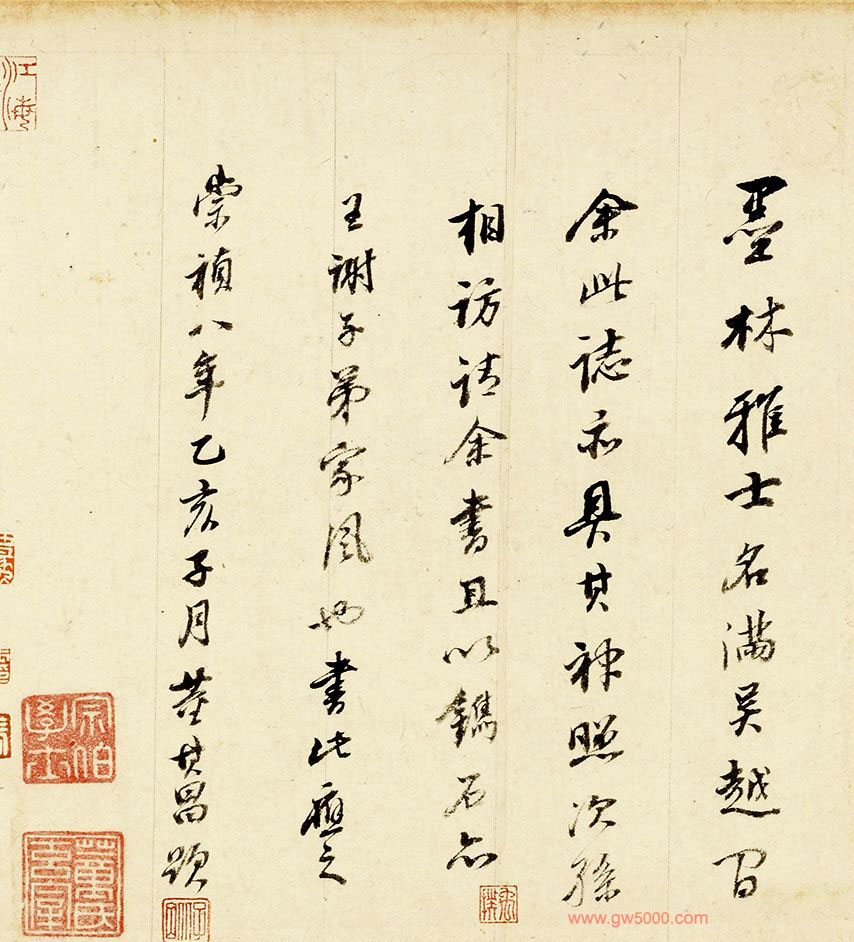 墨林雅士名滿吴越間
余此誌亦具其神照次孫
相訪請余書且以鐫石亦
王謝子弟家風也書此應之
崇禎八年乙亥子月董其昌題
宗伯學士
董氏玄宰
江海
www.gw5000.com